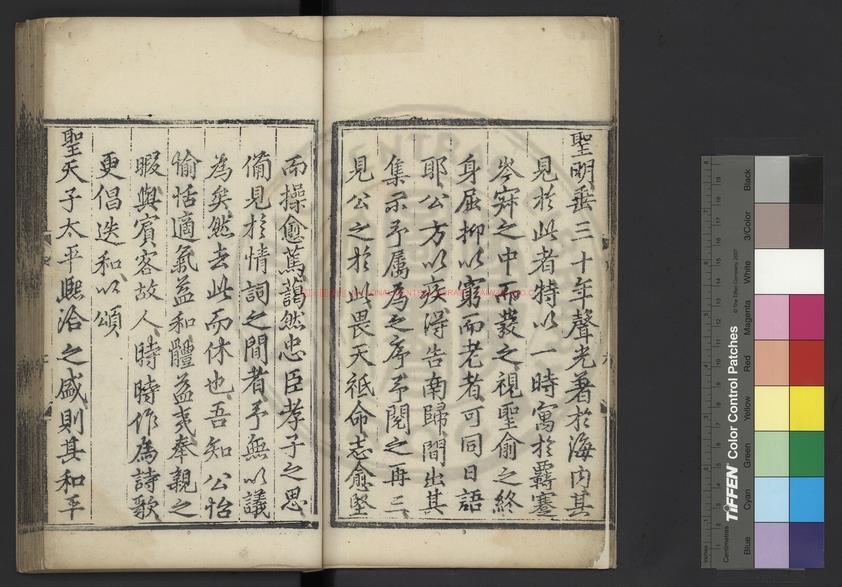 聖明垂三十年聲光著於海內其
見於此者特以一時寓於覊蹇
岑寂之中而發之視聖俞之終
身屈抑以窮而老者可同日語
耶公方以疾得告南歸間出其
集示予屬為之序予閱之再三
見公之於此畏天祗命志愈堅
而操愈篤藹然忠臣孝子之思
備見於情詞之間者予無以議
為矣然去此而休也吾知公怡
愉恬適氣益和體益夷奉親之
暇與賓客故人時時作為詩歌
更倡迭和以頌
聖天子太平熙洽之盛則其和平
TIFFEN Color Control Patches
© The Tiffen Company, 2007
Centimetres
Inches
Blue
Cyan
Green
Yellow
Red
Magenta
White
3/Color
Black